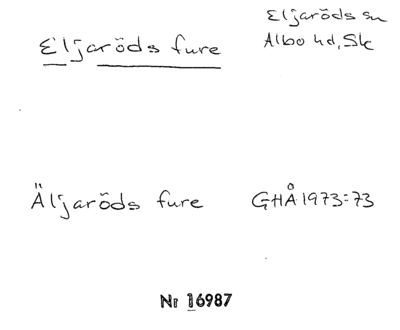 Eljaröds fure
Eljaröds sn
Albo hd, Sk
Äljaröds fure
GHÅ 1973:73
Nr 16987